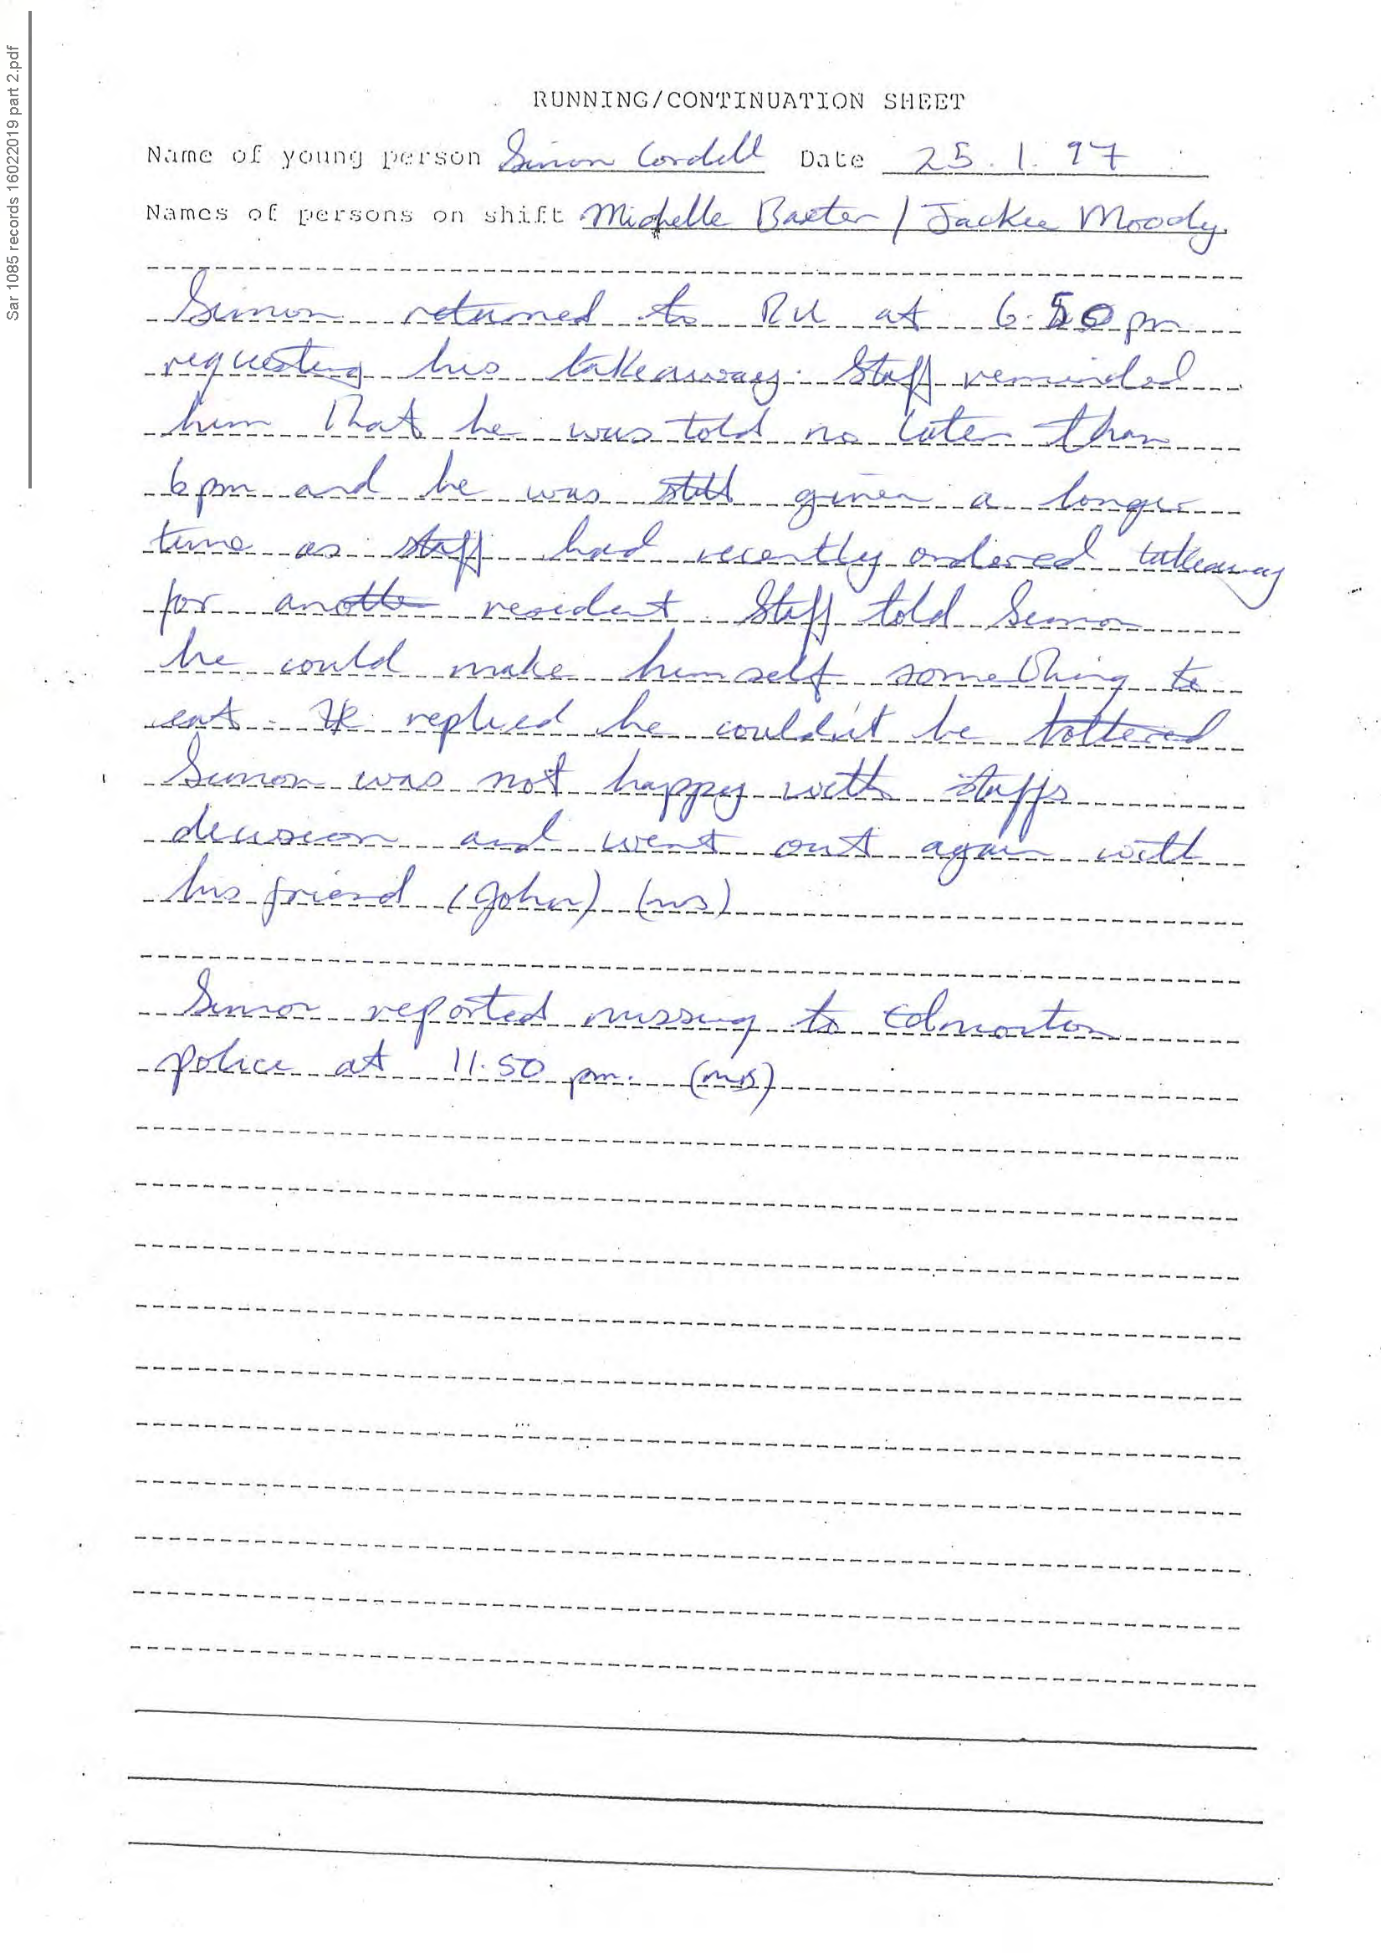 Sar 1085 records 16022019 part 2.pdf
RUNNING/CONTINUATION SHEET
Name of young person Simon Cordell Date 25.1.97
Names of persons on shift Michelle Baxter / Jackie Moody.
Simon returned to RU at 6.50pm
requesting his takeaway. Staff reminded
him that he was told no later than
6pm and he was still given a longer
time as staff had recently ordered takeaway
for another resident. Staff told Simon
he could make himself something to
eat. He replied he couldn't be bothered
Simon was not happy with staffs
decision and went out again with
his friend (John)
Simon reported missing to Edmonton
police at 11.50 pm. (MB)